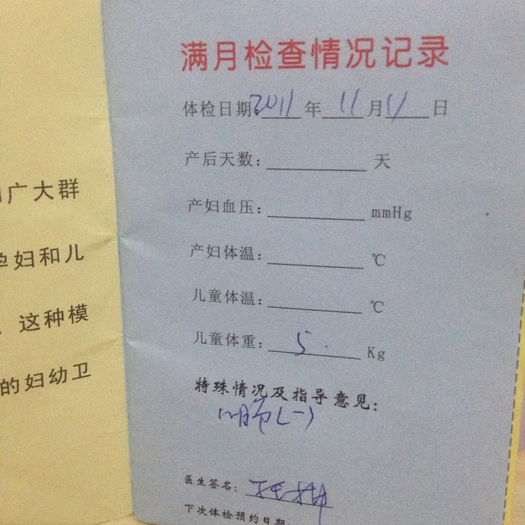 广大群
孕妇和儿
这种模
的妇幼卫
满月检查情况记录
体检日期 2011 年 11 月 11 日
产后天数: 天
产妇血压: mmHg
产妇体温: ℃
儿童体温: ℃
儿童体重: 5 Kg
特殊情况及指导意见:
(-)
医生签名:
下次体检预约日期: